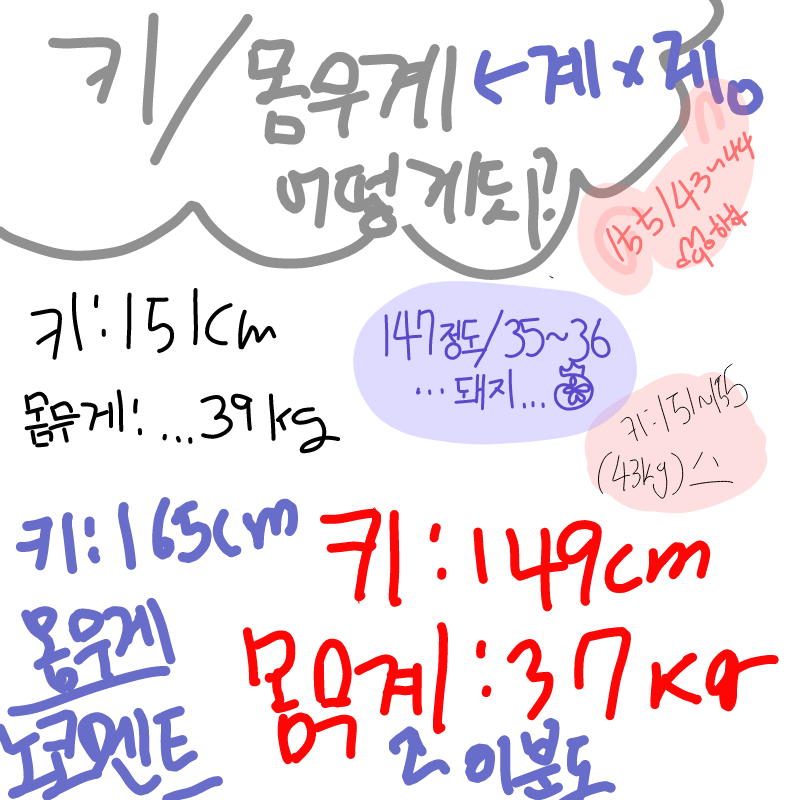 키/몸무계 ← 계 x 게。
어떻게 되?
155/43~44
키:151cm
몸무게: ...39kg
147정도/35~36
...돼지...
키:151~155
(43kg)스
키:165cm
몸무게
노코멘트
키:149cm
몸무계:37kg
이분도